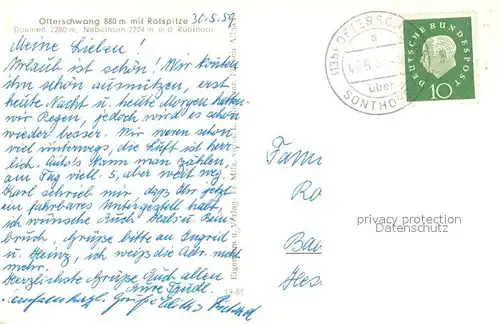 Ofterschwang 880 m mit Rotspitze
30.5.59
Daumen 2280 m, Nebelhorn 2224 m u.d. Rubihorn
Meine Lieben!
Urlaub ist schön! Wir konnten
ihn schön ausnützen, erst
heute Nacht u. heute Morgen hatten
wir Regen, jedoch wird es schon
wieder besser. Wir waren schon
viel unterwegs, die Luft ist herr
lich. Auto's kann man zählen,
am Tag viell. 5, aber weit weg.
Karl schrieb mir, dass Ihr jetzt
ein fahrbares Untergestell habt,
ich wünsche Euch Hals u. Bein
bruch, Grüße bitte an Ingrid
u. Heinz, ich weiß die Adr. nicht
mehr.
Herzlichste Grüße Euch allen
Eure Trudl.
herzl. Grüße Edith
19-67
OFTERSC
(13b)
a
über
SONTHO
DEUTSCHE BUNDESPOST
10
Fam
Ro
Bad
Hes
privacy protection
Datenschutz